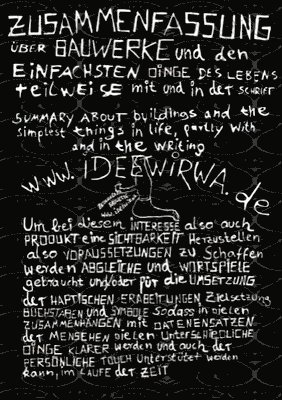 ZUSAMMENFASSUNG
ÜBER BAUWERKE und den
EINFACHSTEN DINGE DES LEBENS
teilweise mit und in der SCHRIFT
SUMMARY ABOUT buildings and the
simplest things in life, partly with
and in the writing
www.IDEEWIRWA.de
Um bei diesem INTERESSE also auch
PRODUKT eine SICHTBARKEIT Herzustellen
also VORAUSSETZUNGEN zu Schaffen
werden ABGLEICHE und WORTSPIELE
gebraucht und/oder für die UMSETZUNG
der HAPTISCHEN ERARBEITUNGEN Zielsetzung
BUCHSTABEN und SYMBOLE Sodass in vielen
ZUSAMMENHÄNGEN mit DATENENSÄTZEN
der MENSCHEN vielen Unterschiedliche
DINGE KLARER werden und auch der
PERSÖNLICHE TOUCH Unterstützt werden
kann, im LAUFE der ZEIT